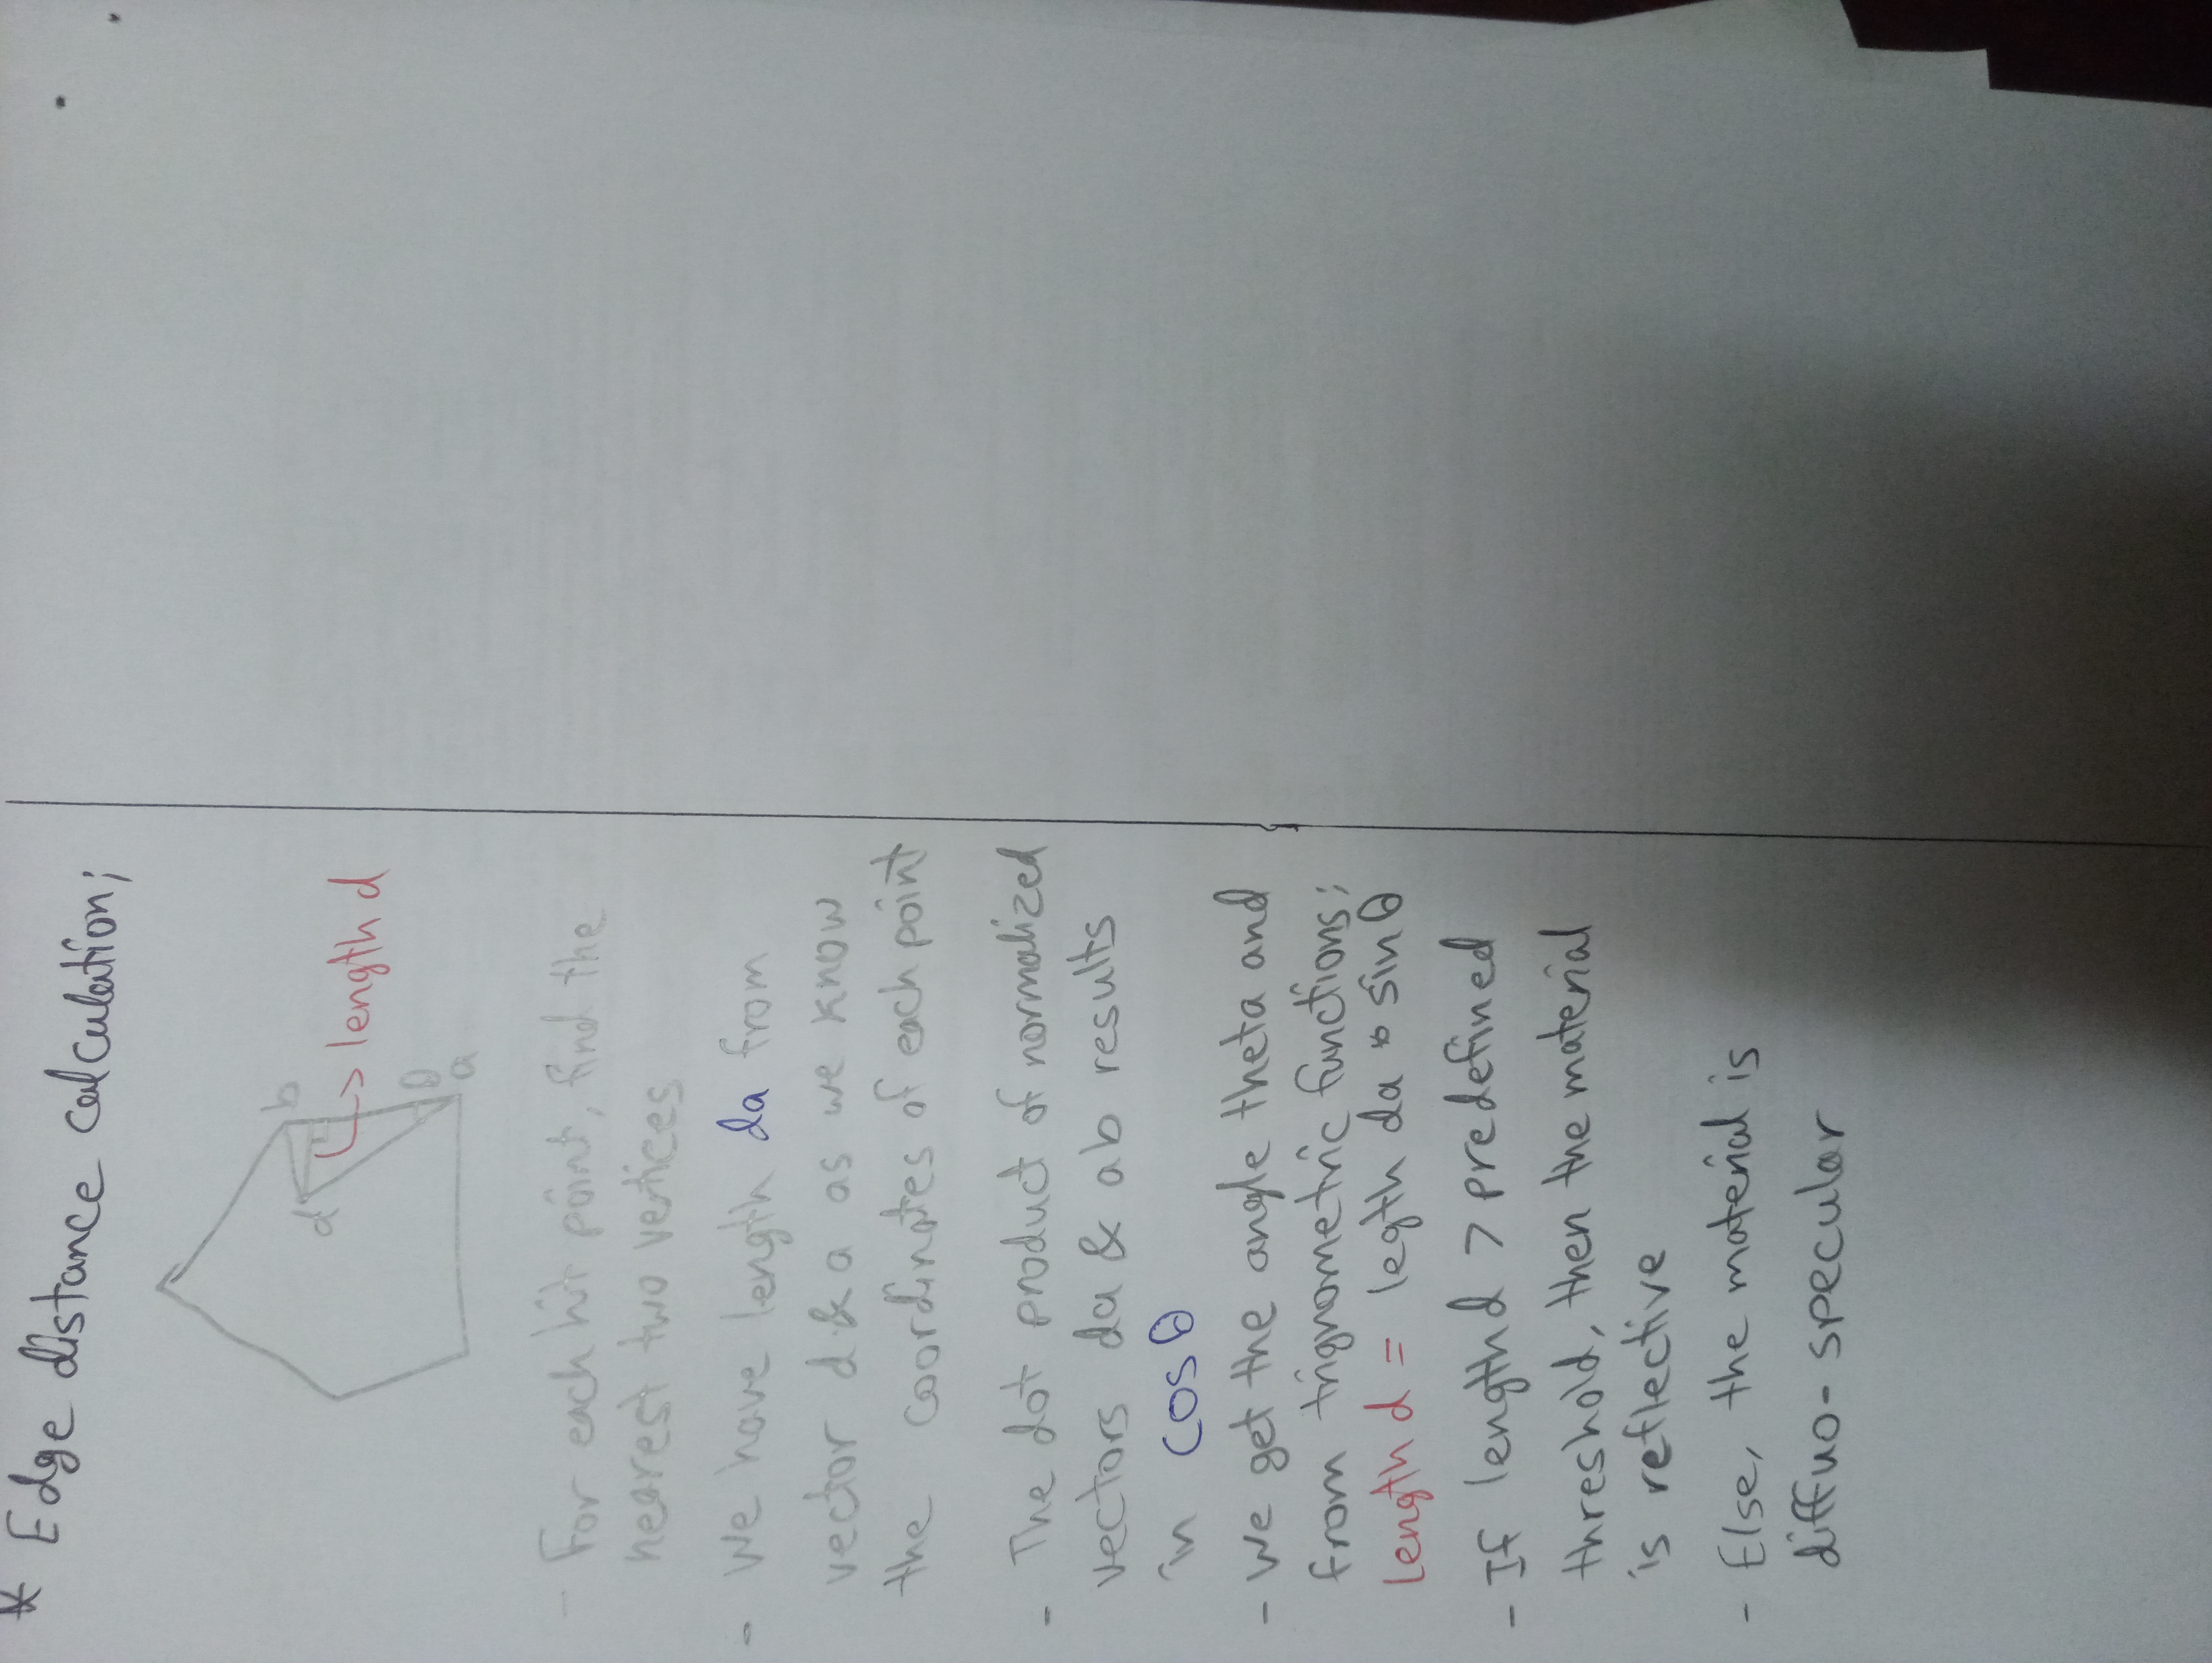 * Edge distance calculation;
b
d
length d
θ
a
- For each hit point, find the
nearest two vertices
- We have length da from
vector d & a as we know
the coordinates of each point
- The dot product of normalized
vectors da & ab results
in cosθ
- We get the angle theta and
from trignometric functions;
length d = legth da * sinθ
- If length d > predefined
threshold, then the material
is reflective
- Else, the material is
diffuo-specular